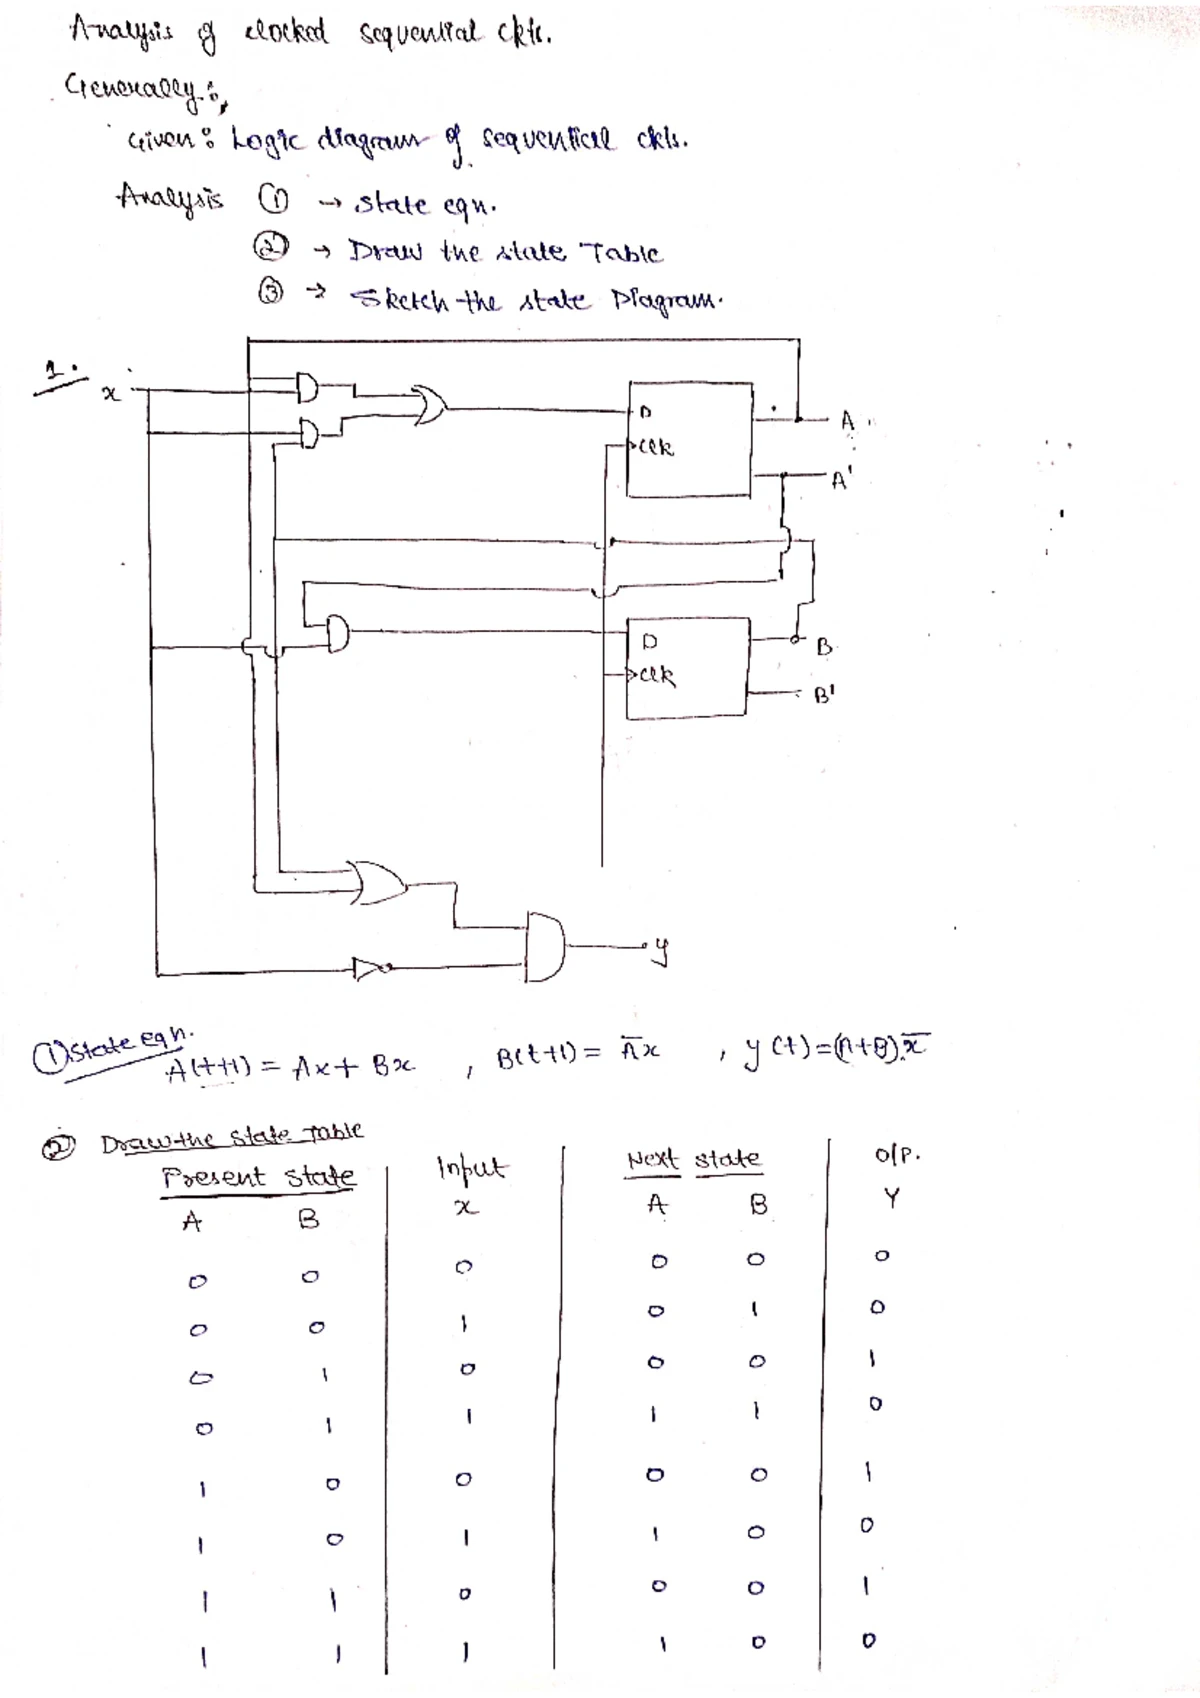 Analysis of clocked sequential ckts.
Generally:,
Given: Logic diagram of sequential ckts.
Analysis ① → state eqn.
② → Draw the state Table
③ → Sketch the state Diagram.
1.
x
D
Clk
A
A'
D
Clk
B
B'
y
① State eqn.
A(t+1) = Ax + Bx , B(t+1) = A̅x , y(t) = (A+B).x̅
② Draw the state Table
Present state Input Next state O/P.
A B x A B Y
0 0 0 0 0 0
0 0 1 0 1 0
0 1 0 0 0 1
0 1 1 1 1 0
1 0 0 0 0 1
1 0 1 1 0 0
1 1 0 0 0 1
1 1 1 1 0 0